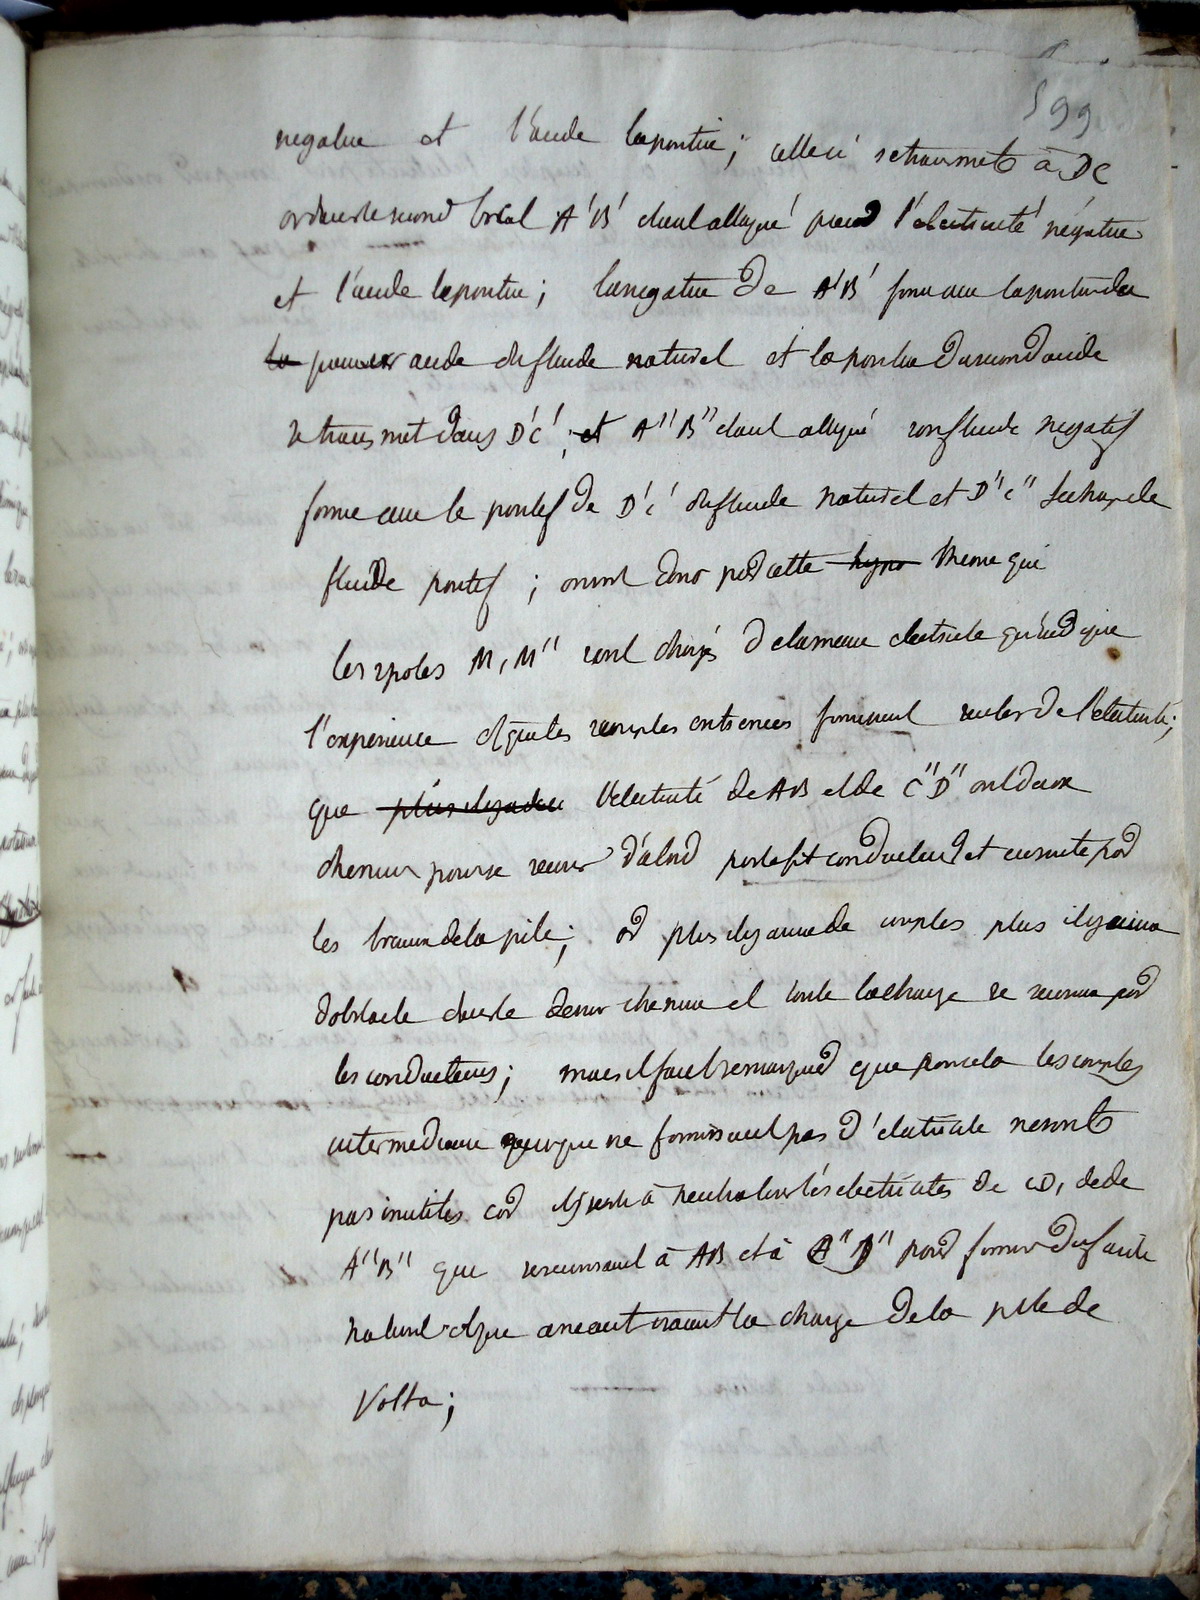 599
negative et l'acide la positive; celle ci se transmet à DC
or dans le second bocal A'B' étant attaqué prend l'électricité négative
et l'acide la positive; la negative de A'B' forme avec la positive du
la premier acide du fluide naturel et la positive du second acide
se transmet dans D'C'; et A''B'' étant attaqué son fluide negatif
forme avec le positif de D'C' du fluide naturel et D''C'' se charge de
fluide positif; on voit donc par cette hypo theorie que
les 2 poles M, M'' sont chargés de la meme electricité qu'indique
l'experience et que les couples extremes fournissent seuls de l'electricité;
que plus il y a de l'electricité de AB et de C''D'' ont deux
chemins pour se reunir d'abord par les fil conducteurs et ensuite par
les bocaux de la pile; or plus il y aura de couples plus il y aura
d'obstacle dans le dernier chemin et toute la charge se reunira par
les conducteurs; mais il faut remarquer que pour cela les couples
intermediaires quoique ne fournissant pas d'electricité ne sont
pas inutiles car ils servent à neutraliser les electricités de CD, de
A''B'' que se reunissant à AB et à C''D'' pour former du fluide
naturel et que aneantiraient la charge de la pile de
Volta;